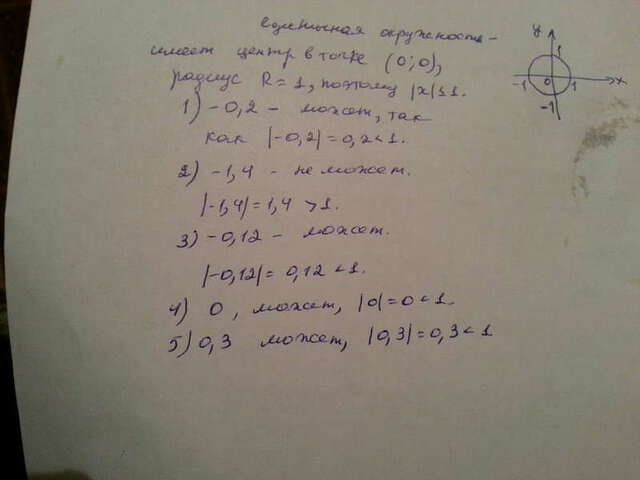 единичная окружность -
имеет центр в точке (0;0),
радиус R=1, поэтому |x|≤1.
1) -0,2 - может, так
как |-0,2|=0,2<1.
2) -1,4 - не может.
|-1,4|=1,4 >1.
3) -0,12 - может.
|-0,12|=0,12<1.
4) 0, может, |0|=0<1.
5) 0,3 может, |0,3|=0,3<1
y
1
-1 0 1 x
-1